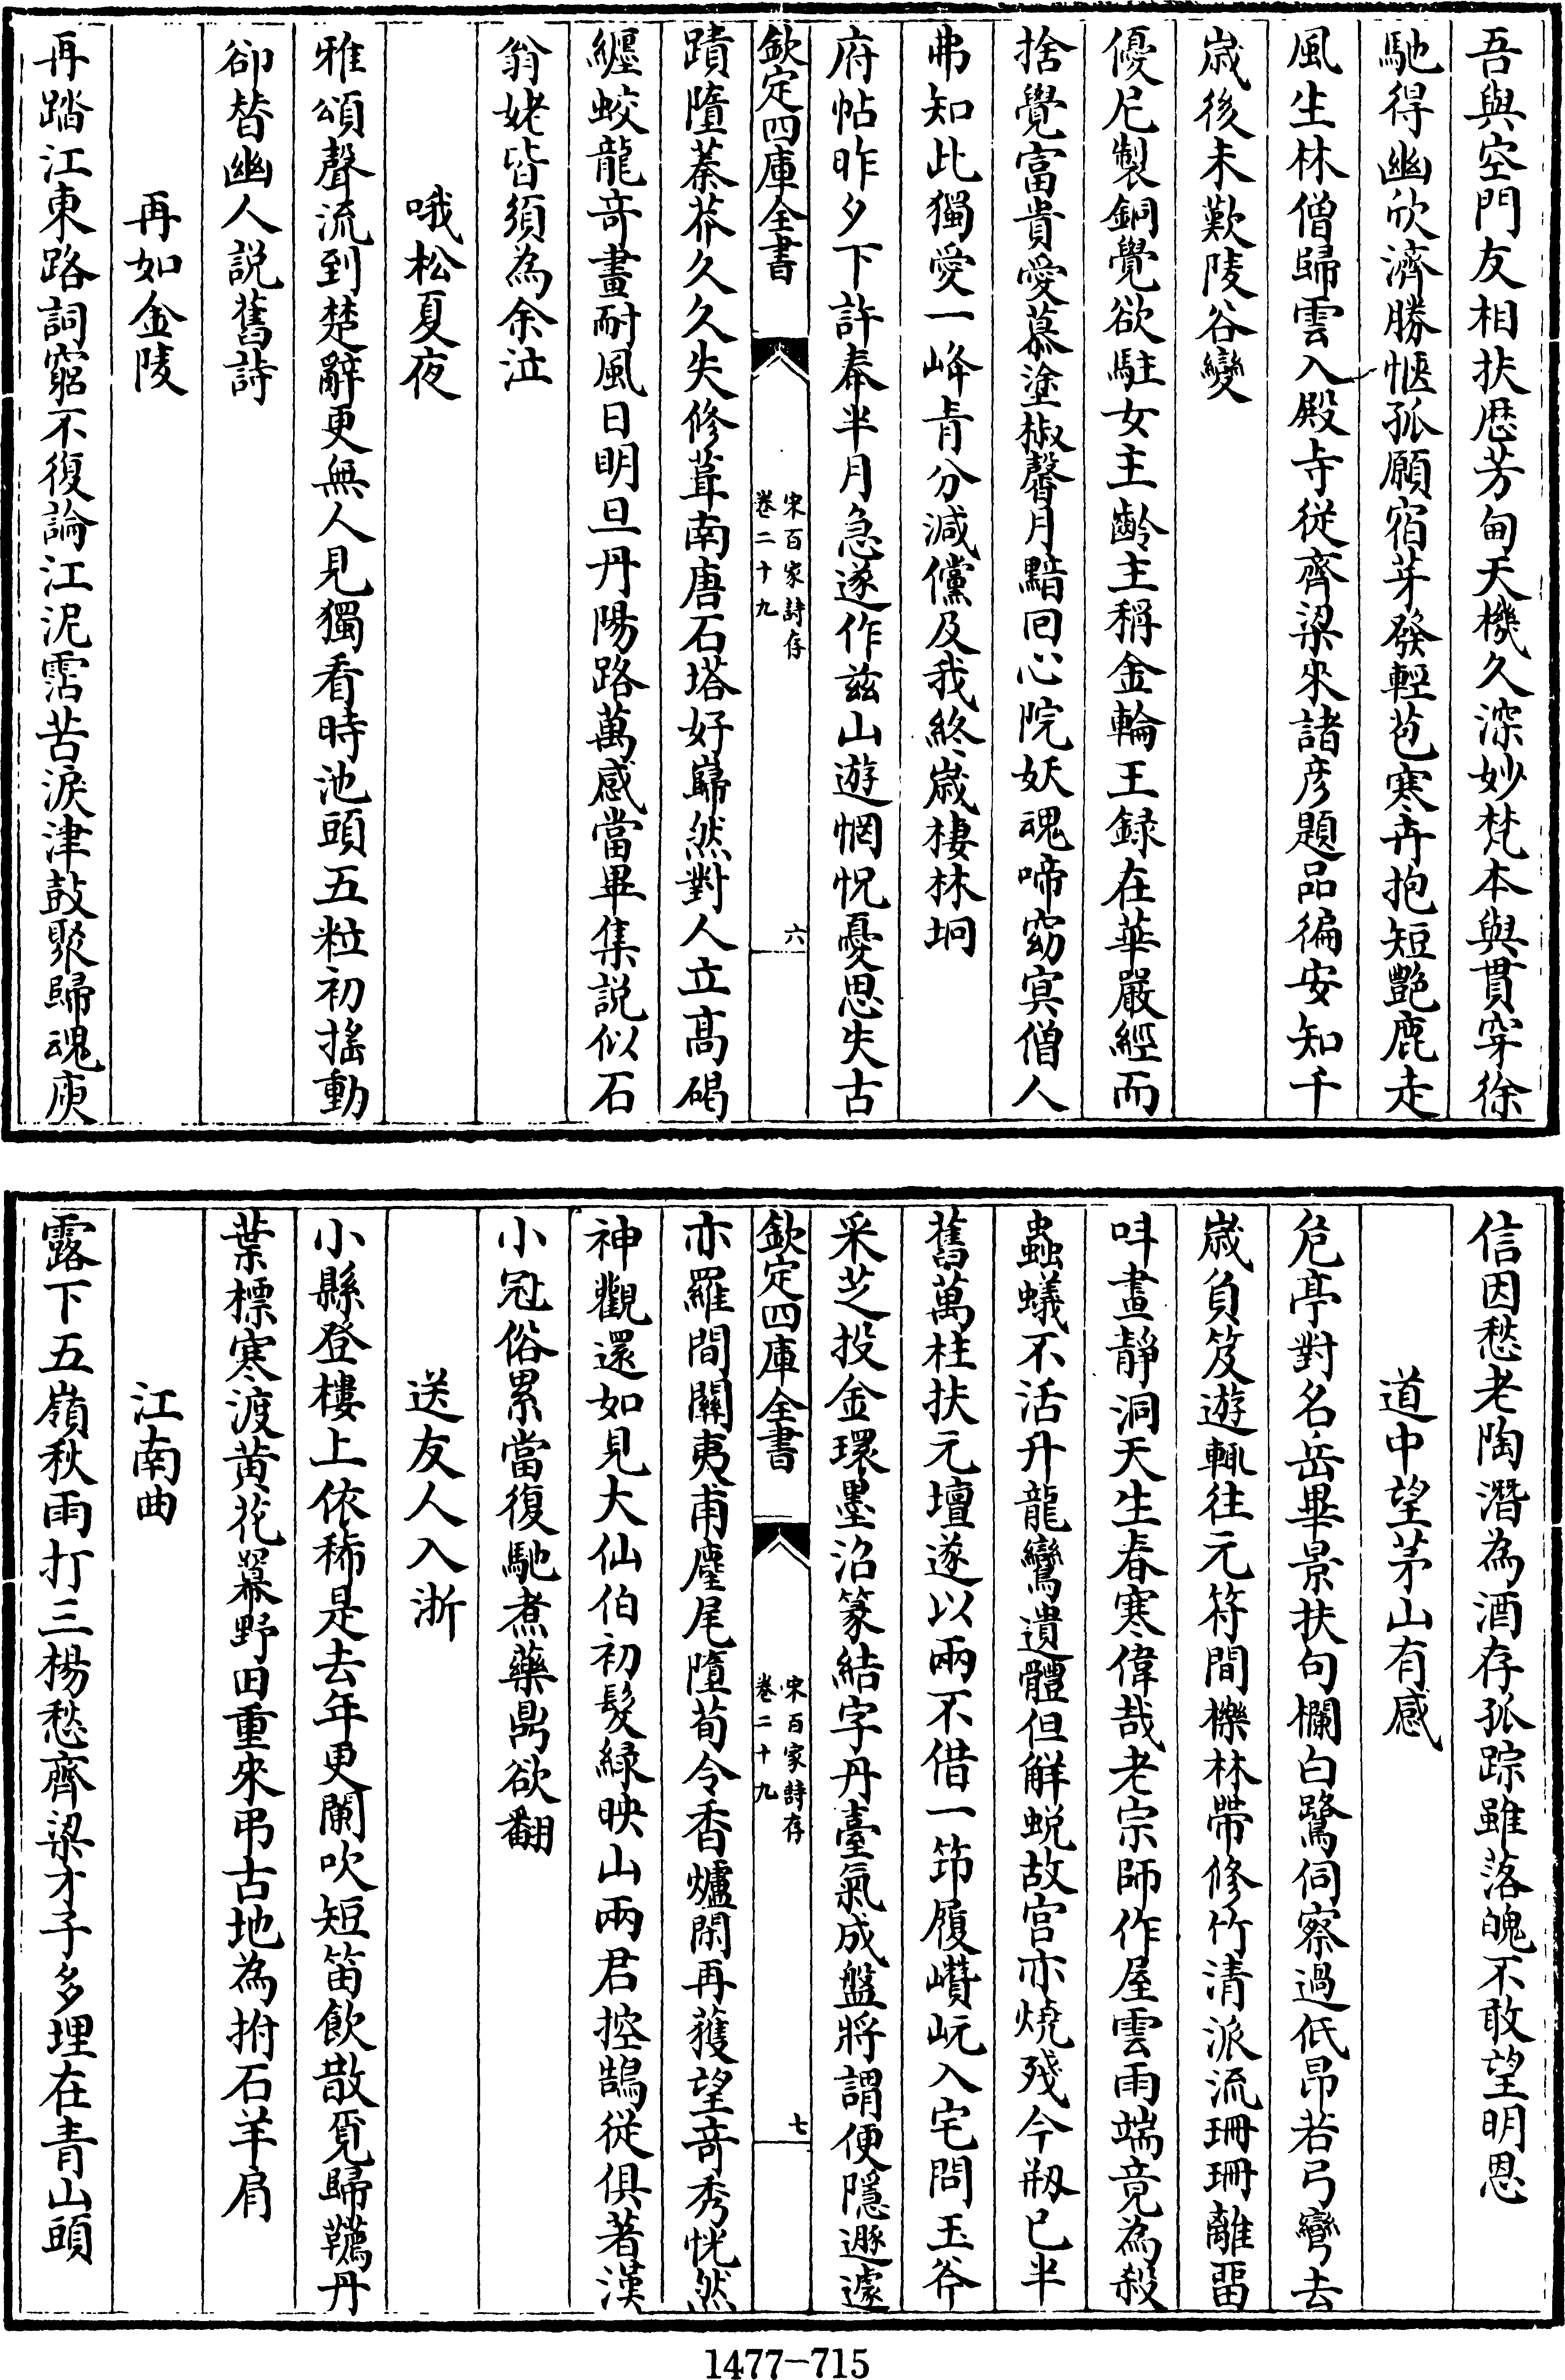 吾與空門友相扶歴芳甸天機久深妙梵本與貫穿徐
馳得幽欣濟勝愜孤願宿芽發輕苞寒卉抱短艷鹿走
風生林僧歸雲入殿寺從齊梁來諸彦題品徧安知千
歲後未歎陵谷變
優尼製銅覺欲駐女主齡主稱金輪王録在華嚴經而
捨覺富貴愛慕塗椒馨月黯囘心院妖魂啼窈㝠僧人
弗知此獨愛一峰青分減儻及我終歲棲林坰
府帖昨夕下許奉半月急遂作兹山遊惘怳憂思失古
欽定四庫全書
宋百家詩存
卷二十九
六
蹟墮蓁莽久久失修葺南唐石塔好巋然對人立髙碣
纒蛟龍竒畫耐風日明旦丹陽路萬感當畢集説似石
翁姥皆須為余泣
哦松夏夜
雅頌聲流到楚辭更無人見獨看時池頭五粒初搖動
卻替幽人説舊詩
再如金陵
再踏江東路詞窮不復論江泥霑苦淚津鼓聚歸魂庾
信因愁老陶潛為酒存孤踪雖落魄不敢望明恩
道中望茅山有感
危亭對名岳畢景扶句欄白鷺伺察過低昂若弓彎去
歲負笈遊輒往元符間櫟林帶修竹清派流珊珊離畱
呌晝靜洞天生春寒偉哉老宗師作屋雲雨端竟為殺
蟲蟻不活升龍鸞遺體但觧蛻故宫亦燒殘今剏已半
舊萬柱扶元壇遂以兩不借一笻履巑岏入宅問玉斧
采芝投金環墨沼篆結字丹臺氣成盤將謂便隱遯遽
欽定四庫全書
宋百家詩存
卷二十九
七
亦羅間關夷甫麈尾墮荀令香爐閑再獲望竒秀恍然
神觀還如見大仙伯初髮緑映山兩君控鵠從俱著漢
小冠俗累當復馳煮藥鼎欲翻
送友人入浙
小縣登樓上依稀是去年更闌吹短笛飲散覓歸韉丹
葉標寒渡黄花羃野田重來弔古地為拊石羊肩
江南曲
露下五嶺秋雨打三楊愁齊梁才子多埋在青山頭
1477-715